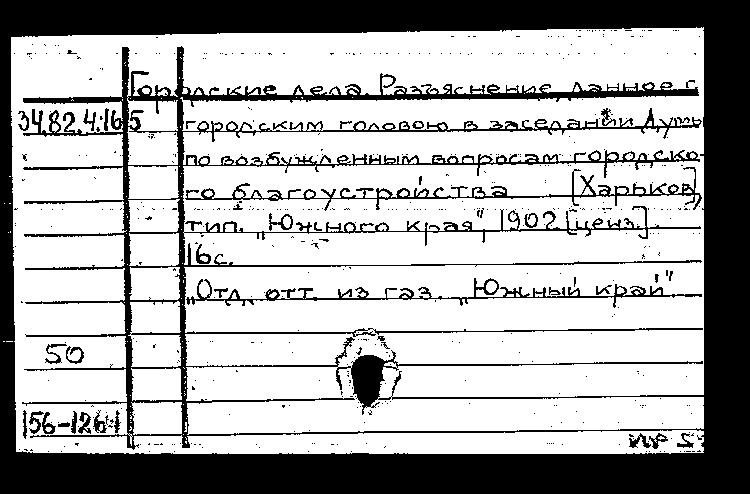 Городские дела. Разъяснение, данное г.
34.82.4.165 городским головою в заседании Думы
по возбужденным вопросам городско-
го благоустройства [Харьков],
тип. „Южного края", 1902 [ценз.].
16с.
„Отд. отт. из газ. „Южный край"
50
156-1264